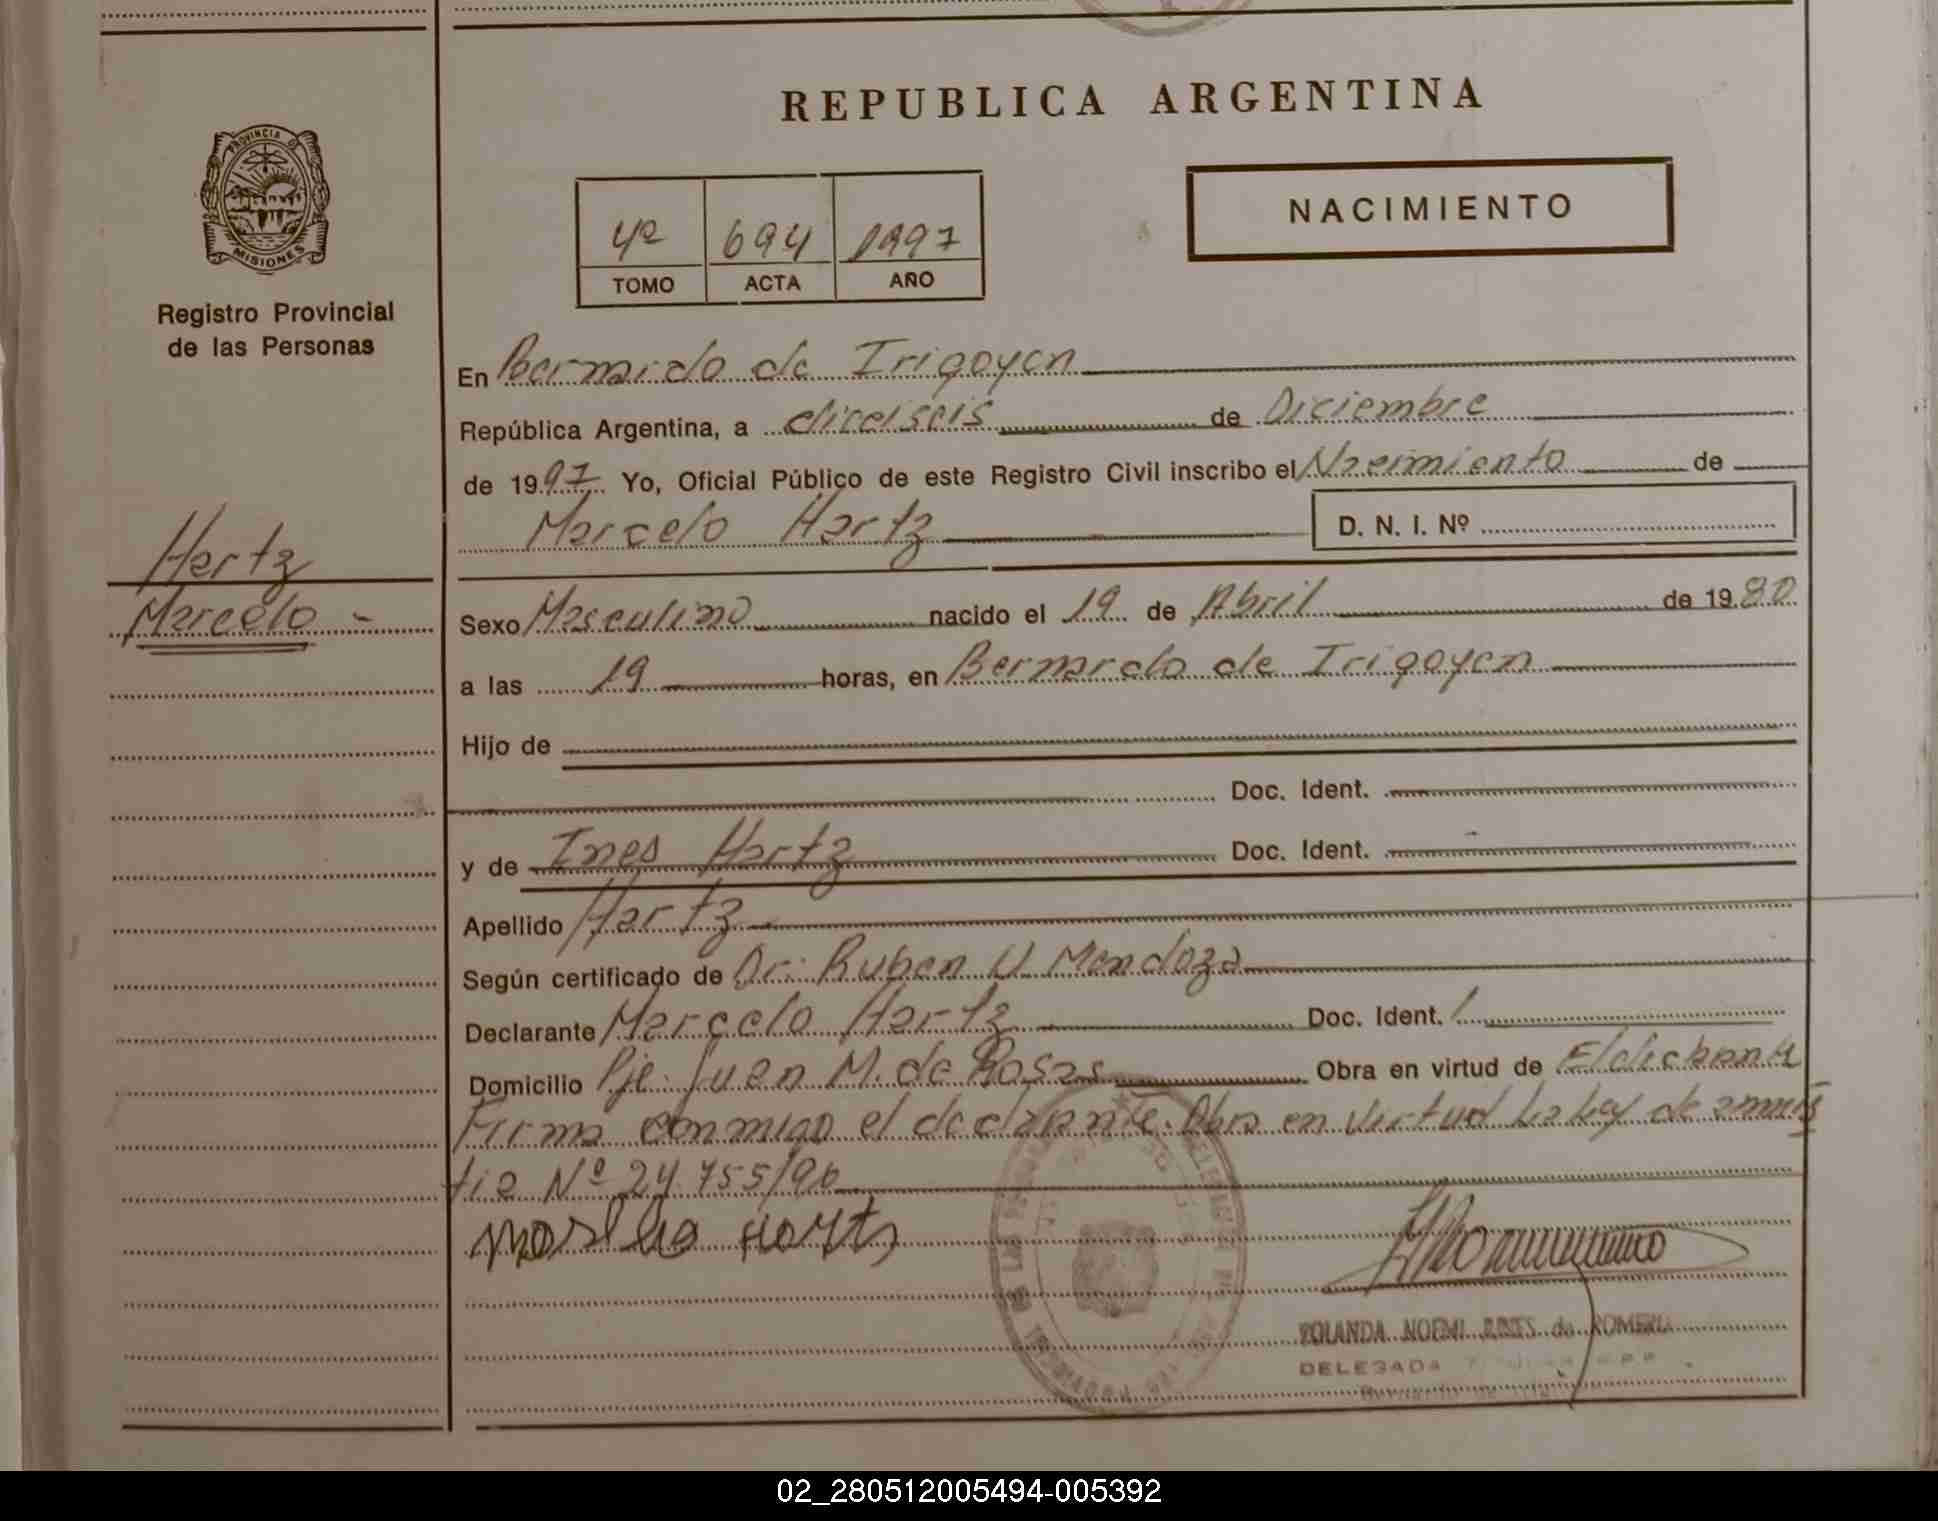 REPUBLICA ARGENTINA
PROVINCIA DE
MISIONES
Registro Provincial
de las Personas
4º 694 1997
TOMO ACTA AÑO
NACIMIENTO
En Bernardo de Irigoyen
República Argentina, a dieciseis de Diciembre
de 1997 Yo, Oficial Público de este Registro Civil inscribo el Nacimiento de
Marcelo Hartz D. N. I. Nº
Hartz
Marcelo -
Sexo Masculino nacido el 19 de Abril de 1980
a las 19 horas, en Bernardo de Irigoyen
Hijo de
Doc. Ident.
y de Ines Hartz Doc. Ident.
Apellido Hartz
Según certificado de Dr. Ruben U. Mendoza
Declarante Marcelo Hartz Doc. Ident. /
Domicilio Pje. Juan M. de Rosas Obra en virtud de El declarante
Firma conmigo el declarante. Obra en virtud La Ley de amnis
tia Nº 24.755/96
YOLANDA NOEMI de ROMERO
DELEGADA
02_280512005494-005392